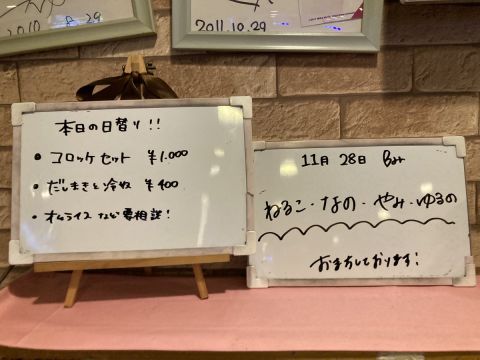 2010 8/29
2011.10.29
本日の日替り!!
• コロッケセット ¥1.000
• だしまきと冷奴 ¥400
• オムライスなど要相談!
11月 28日
ねるこ・なの・やみ・ゆるの
お待ちしております!